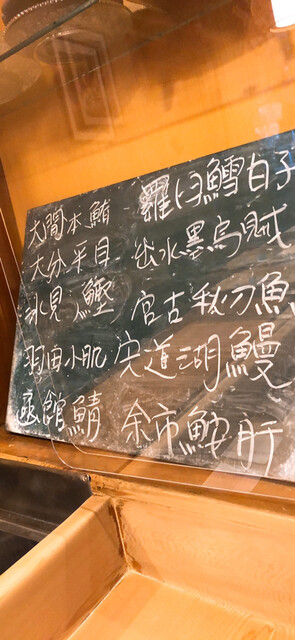 大間本鮪
大分平目
氷見 鰹
羽田小肌
函館鯖
羅臼鱈白子
出水墨烏賊
宮古秋刀魚
宍道湖鰻
余市鮟肝